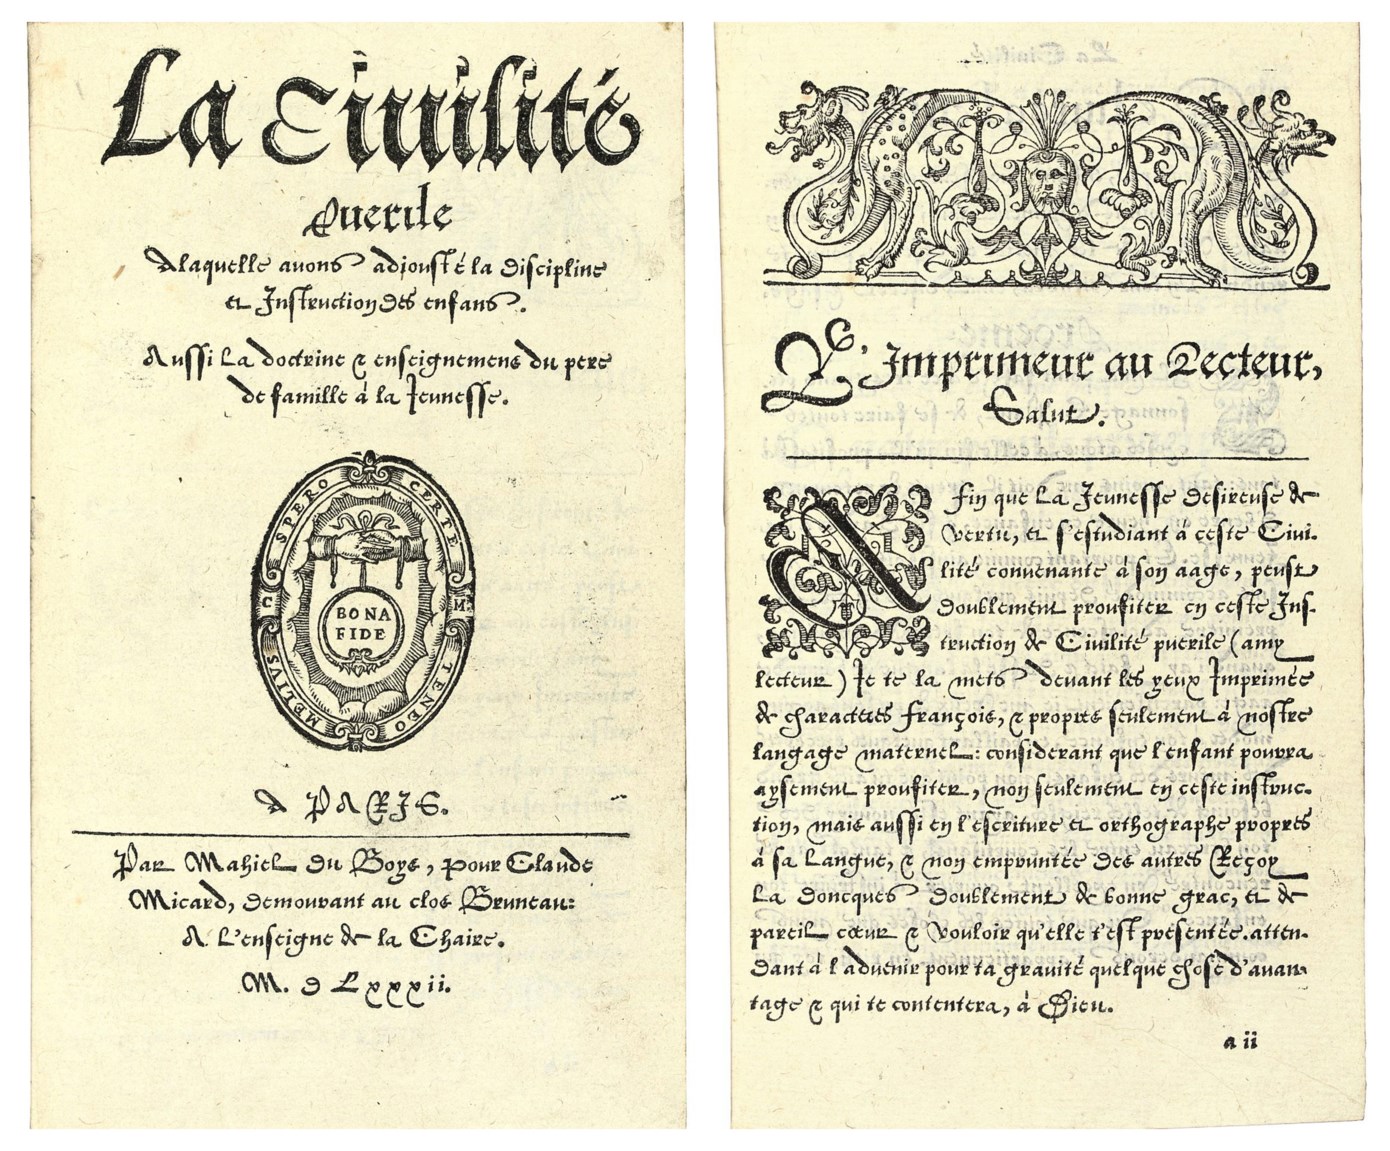 La Ciuilité
Puerile
Alaquelle auons adiousté la discipline
et Instruction des enfans.
Aussi La doctrine & enseignemens du pere
de famille à la Jeunesse.
SPERO CERTE
C M
MELIVS TENEDO
BONA
FIDE
A PARIS.
Par Mahiel du Boys, pour Claude
Micard, demourant au clos Bruneau:
A L'enseigne de la Chaire.
M. D Lxxxii.
L'Imprimeur au Lecteur,
Salut.
Afin que La Jeunesse desireuse de
vertu, et s'estudiant à ceste Ciui-
lité conuenante à son aage, peust
doublement proufiter en ceste Ins-
truction de Ciuilité puerile (amy
lecteur) Je te la mets deuant les yeux Imprimée
de characteres François, & propres seulement à nostre
langage maternel: considerant que l'enfant pourra
aysement proufiter, non seulement en ceste instruc-
tion, mais aussi en l'escriture et orthographe propres
à sa Langue, & non empruntée des autres Reçoy
La doncques doublement de bonne grac, et de
pareil cœur & vouloir qu'elle t'est presentée. atten-
dant à l'aduenir pour ta grauité quelque chose d'auan-
tage & qui te contentera, à Dieu.
a ii